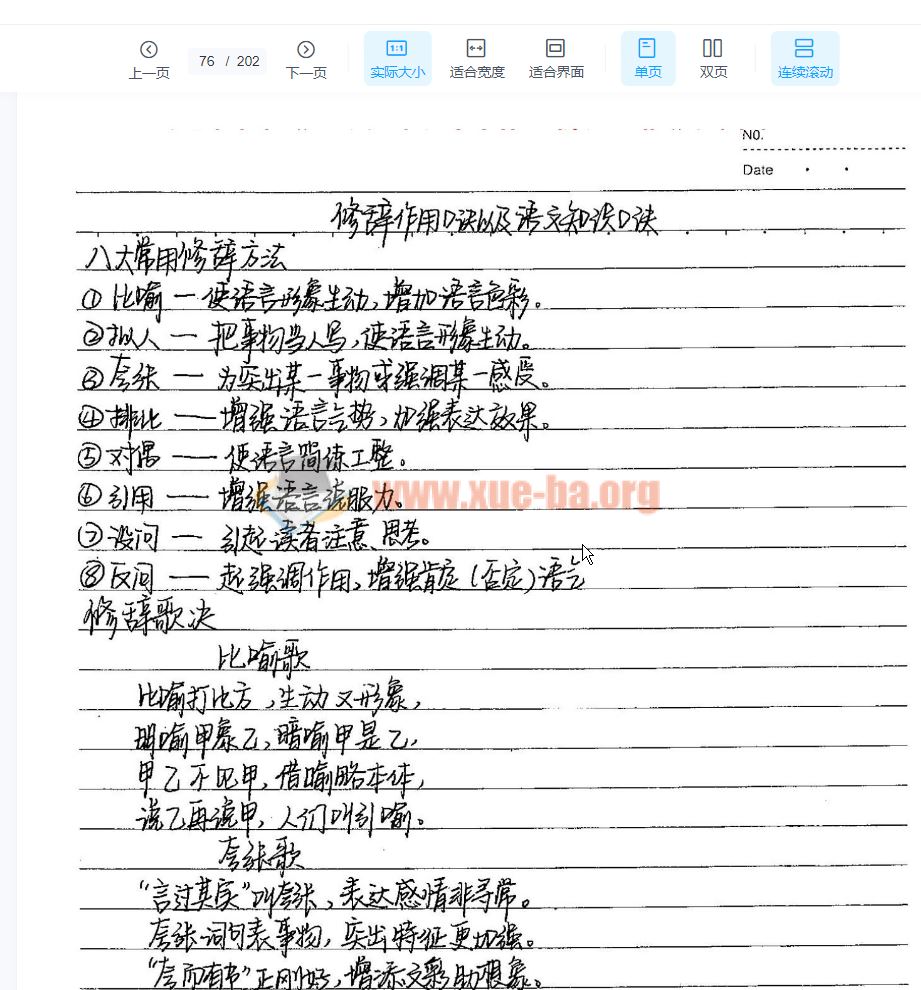 上一页 76 / 202 下一页 1:1 实际大小 适合宽度 适合界面 单页 双页 连续滚动
No.
Date
修辞作用口诀以及语文知识口诀
八大常用修辞方法
① 比喻 — 使语言形象生动，增加语言色彩。
② 拟人 — 把事物当人写，使语言形象生动。
③ 夸张 — 为突出某一事物或强调某一感受。
④ 排比 — 增强语言气势，加强表达效果。
⑤ 对偶 — 使语言简练工整。
⑥ 引用 — 增强语言说服力。
www.xue-ba.org
⑦ 设问 — 引起读者注意、思考。
⑧ 反问 — 起强调作用，增强肯定（否定）语言
修辞歌决
比喻歌
比喻打比方，生动又形象，
明喻甲象乙，暗喻甲是乙，
甲乙不见甲，借喻略本体，
说乙再说甲，人们叫引喻。
夸张歌
“言过其实”叫夸张，表达感情非寻常。
夸张词句表事物，突出特征更加强。
“夸而有节”正刚好，增添文彩助想象。